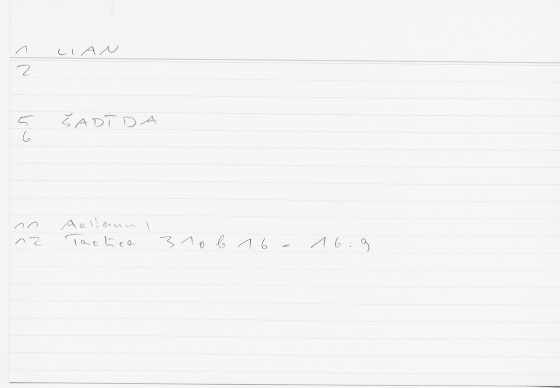 1 LIAN
2
5 ŠADĪDA
6
11 Aelianus
12 Tactica 310 b 16 - 16.9